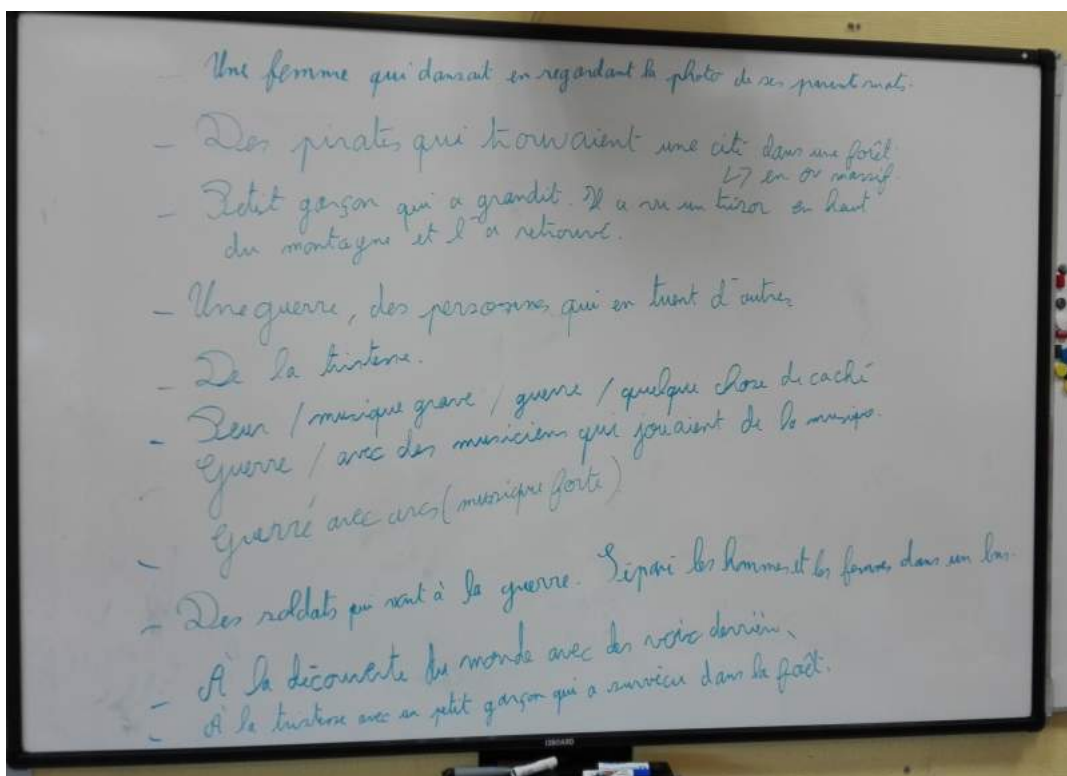 - Une femme qui dansait en regardant la photo de ses parents morts.
- Des pirates qui trouvaient une cité dans une forêt
↳ en or massif.
- Petit garçon qui a grandit. Il a vu un trésor en haut
du montagne et l'a retrouvé.
- Une guerre, des personnes qui en tuent d'autres
- De la tristesse.
- Peur / musique grave / guerre / quelque chose de caché
Guerre / avec des musiciens qui jouaient de la musique.
- Guerre avec arcs (musique forte)
- Des soldats qui vont à la guerre. Séparé les hommes et les femmes dans un bus.
- À la découverte du monde avec des voix derrière.
- À la tristesse avec un petit garçon qui a survécu dans la forêt.